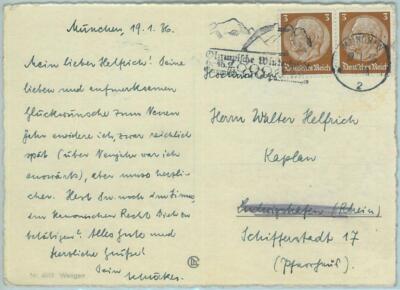 München, 19. 1. 36.
Mein lieber Helfrich! Deine
lieben und aufmerksamen
Glückwünsche zum Neuen
Jahr erwidere ich, zwar reichlich
spät (über Neujahr war ich
auswärts), aber umso herzli-
cher. Hast Du noch
im Kanonischen Recht Dich
betätigen? Alles Gute und
Herzliche Grüße!
Dein
Nr. 4017 Wengen
3
3
Deutsches Reich
Deutsches Reich
Olympische
2
Herrn Walter Helfrich
Kaplan
Ludwigshafen (Rhein)
Schifferstadt 17
(Pfarrhaus)